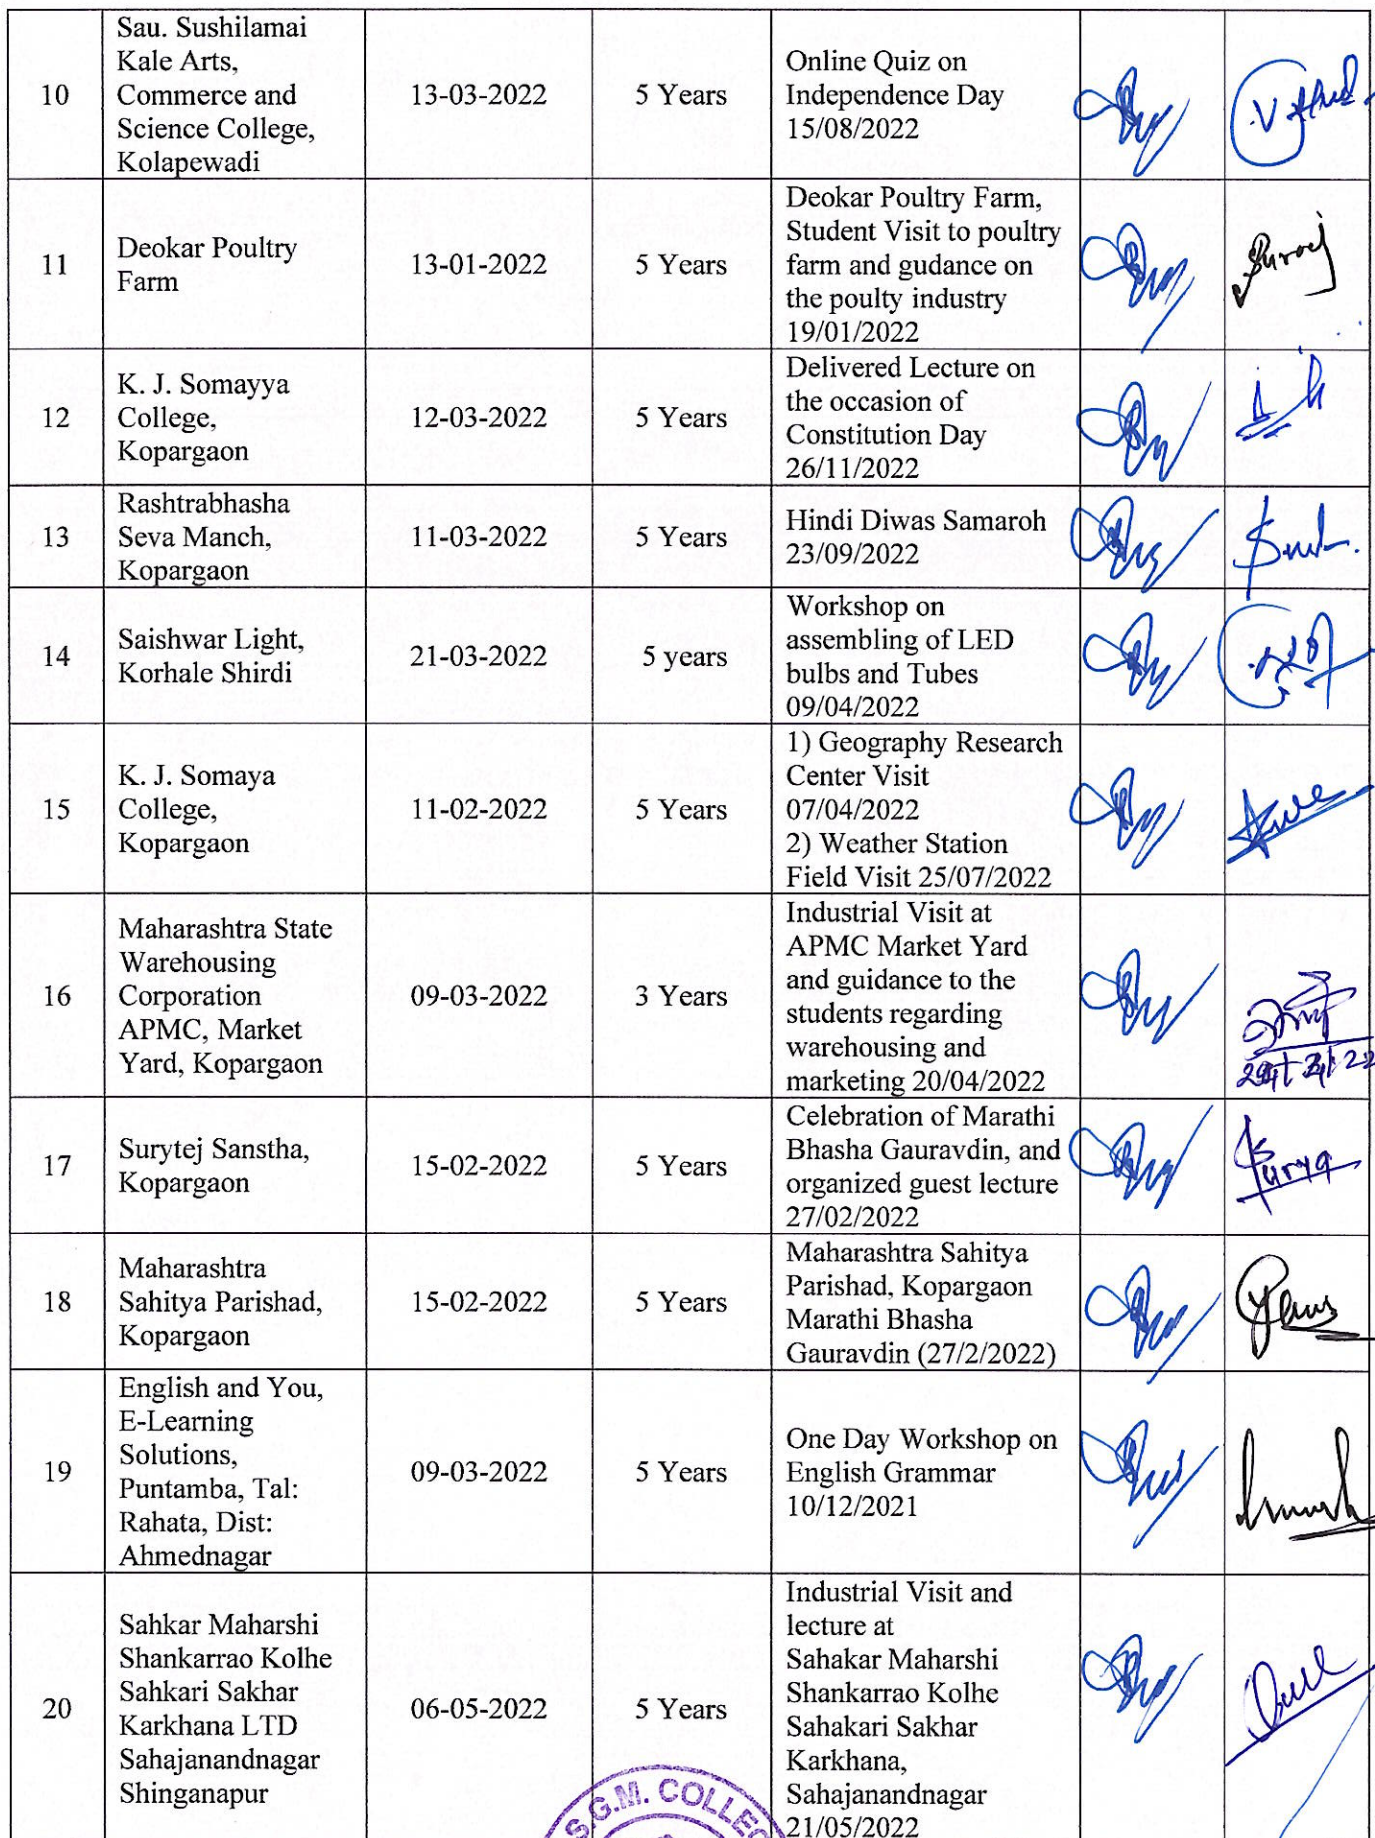 10
Sau. Sushilamai
Kale Arts,
Commerce and
Science College,
Kolapewadi
13-03-2022
5 Years
Online Quiz on
Independence Day
15/08/2022
11
Deokar Poultry
Farm
13-01-2022
5 Years
Deokar Poultry Farm,
Student Visit to poultry
farm and gudance on
the poulty industry
19/01/2022
12
K. J. Somayya
College,
Kopargaon
12-03-2022
5 Years
Delivered Lecture on
the occasion of
Constitution Day
26/11/2022
13
Rashtrabhasha
Seva Manch,
Kopargaon
11-03-2022
5 Years
Hindi Diwas Samaroh
23/09/2022
14
Saishwar Light,
Korhale Shirdi
21-03-2022
5 years
Workshop on
assembling of LED
bulbs and Tubes
09/04/2022
15
K. J. Somaya
College,
Kopargaon
11-02-2022
5 Years
1) Geography Research
Center Visit
07/04/2022
2) Weather Station
Field Visit 25/07/2022
16
Maharashtra State
Warehousing
Corporation
APMC, Market
Yard, Kopargaon
09-03-2022
3 Years
Industrial Visit at
APMC Market Yard
and guidance to the
students regarding
warehousing and
marketing 20/04/2022
17
Surytej Sanstha,
Kopargaon
15-02-2022
5 Years
Celebration of Marathi
Bhasha Gauravdin, and
organized guest lecture
27/02/2022
18
Maharashtra
Sahitya Parishad,
Kopargaon
15-02-2022
5 Years
Maharashtra Sahitya
Parishad, Kopargaon
Marathi Bhasha
Gauravdin (27/2/2022)
19
English and You,
E-Learning
Solutions,
Puntamba, Tal:
Rahata, Dist:
Ahmednagar
09-03-2022
5 Years
One Day Workshop on
English Grammar
10/12/2021
20
Sahkar Maharshi
Shankarrao Kolhe
Sahkari Sakhar
Karkhana LTD
Sahajanandnagar
Shinganapur
06-05-2022
5 Years
Industrial Visit and
lecture at
Sahakar Maharshi
Shankarrao Kolhe
Sahakari Sakhar
Karkhana,
Sahajanandnagar
21/05/2022
S.G.M. COLLEG